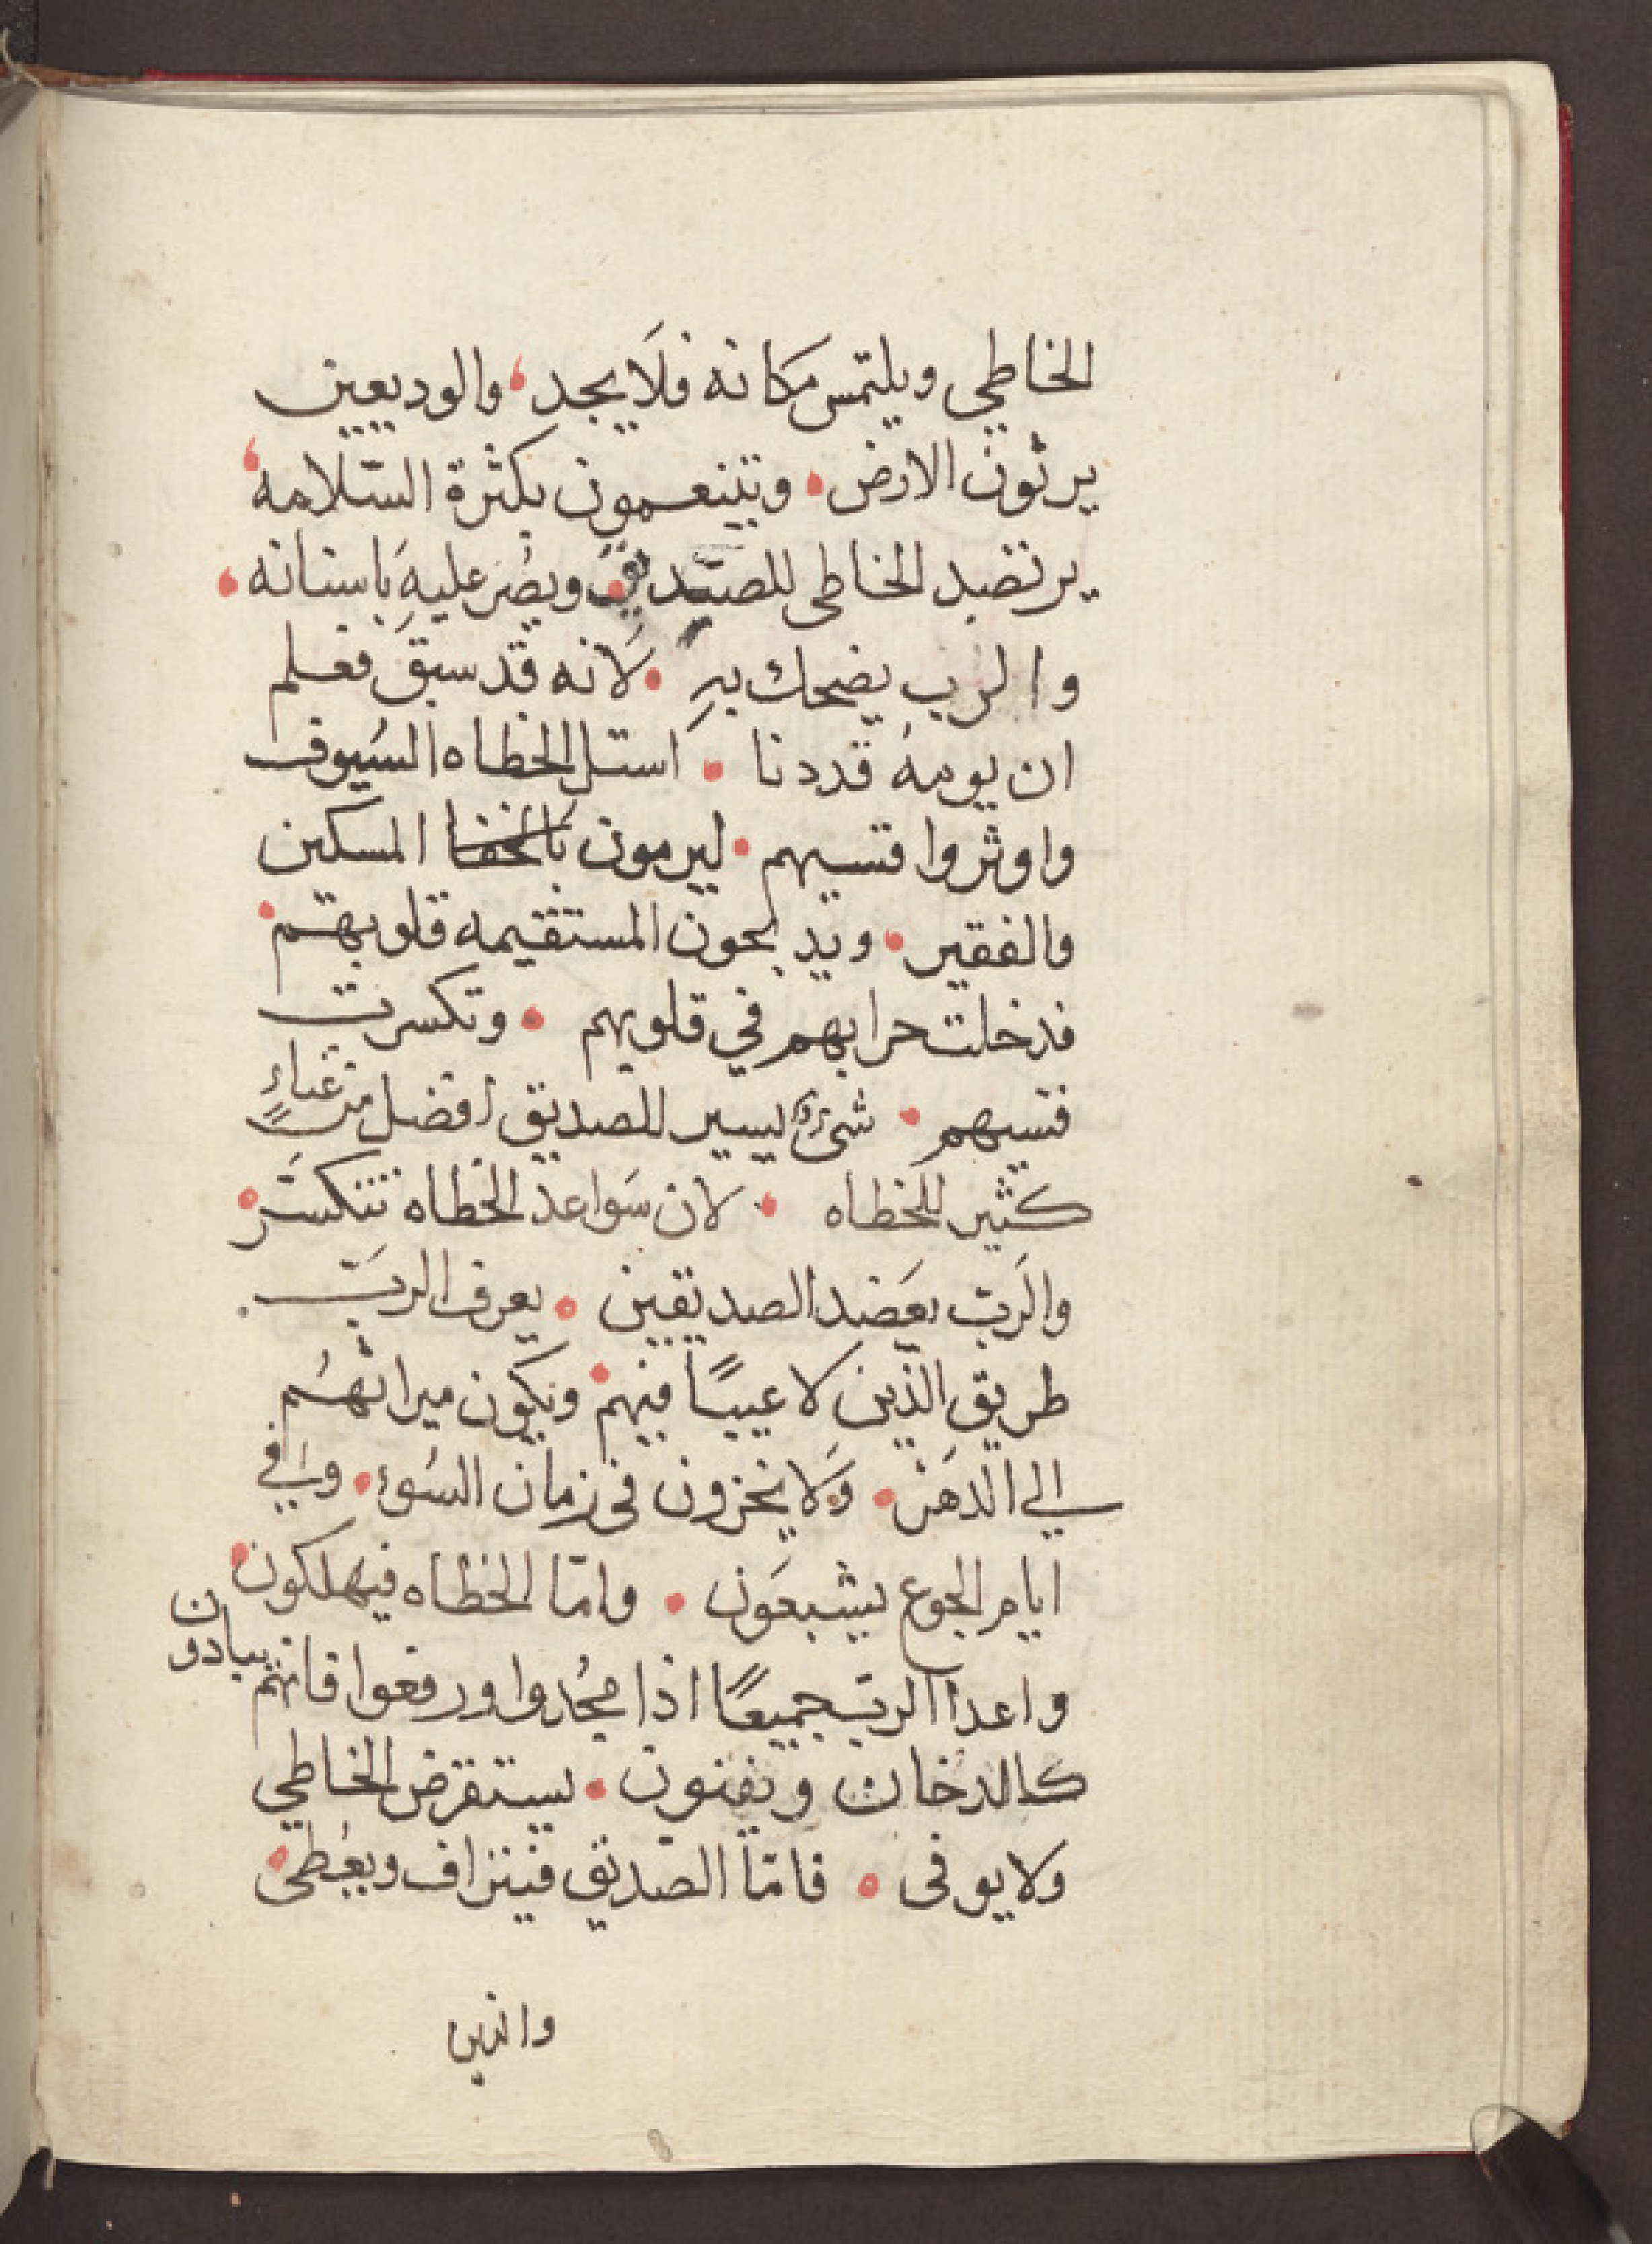 الخاطي ويلتمس مكانه فلَا يجد، والوديعين
يرثون الارض • ويتنعمون بكثرة السّلامه،
يرتصد الخاطى للصدّيق • ويصُر عليهِ باسنانه •
والرب يضحك بهِ • لَانه قد سبقَ فعلم
ان يومهُ قد دنا • استل الخطاه السُيوف
واوثروا قسيهم • ليرمون بالخفا المسكين
والفقير • ويدبحون المستقيمه قلوبهم •
فدخلت حرابهم في قلوبهم • وتكسرت
قسيهم • شىءٌ يسير للصديق افضل من غناءٍ
كثير للخطاه • لان سَواعد الخطاه تتكسَّر •
والرَبّ يعَضد الصديقين • يعرف الربّ
طريق الذين لا عيبًا فيهم • ويكون ميراثهُم
الي الدهَر • وَلا يخزون فى زمان السُوء • وفي
ايام الجوع يشبعَون • وامّا الخطاه فيهلكون •
واعدا الربّ جميعًا اذا مجُدوا ورفعوا فانهم يبادون
كالدخان ويفنون • يستقرض الخاطي
ولا يوفى • فامّا الصّديق فيتراف ويعُطى •
والذين